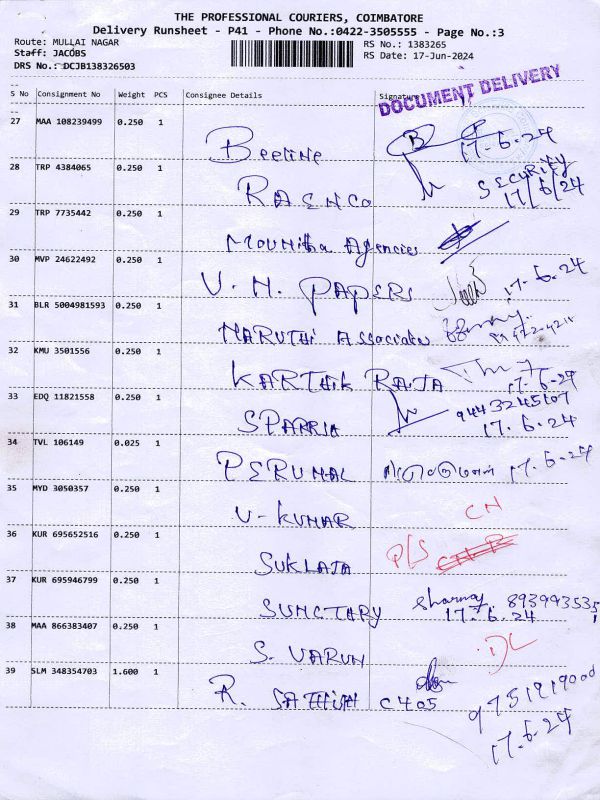 THE PROFESSIONAL COURIERS, COIMBATORE
Delivery Runsheet - P41 - Phone No.:0422-3505555 - Page No.:3
Route: MULLAI NAGAR RS No.: 1383265
Staff: JACOBS RS Date: 17-Jun-2024
DRS No.: DCJB138326503
DOCUMENT DELIVERY
S No Consignment No Weight PCS Consignee Details Signature
27 MAA 108239499 0.250 1 Beeline B 17-6-24
28 TRP 4384065 0.250 1 RAENCO SECURITY 17/6/24
29 TRP 7735442 0.250 1 Mounitha Agencies
30 MVP 24622492 0.250 1 V. N. PAPERS 17-6-24
31 BLR 5004981593 0.250 1 MARUTHi Associates
32 KMU 3501556 0.250 1 KARTHIK RAJA 17-6-24
33 EDQ 11821558 0.250 1 SPARRIA 9443245107 17.6.24
34 TVL 106149 0.025 1 PERUMAL 17-6-24
35 MYD 3050357 0.250 1 V-KUMAR CN
36 KUR 695652516 0.250 1 SUKLAJA P/S
37 KUR 695946799 0.250 1 17-6.24
38 MAA 866383407 0.250 1 S. VARUN DL
39 SLM 348354703 1.600 1 R. SATHISH C405
17.6-24